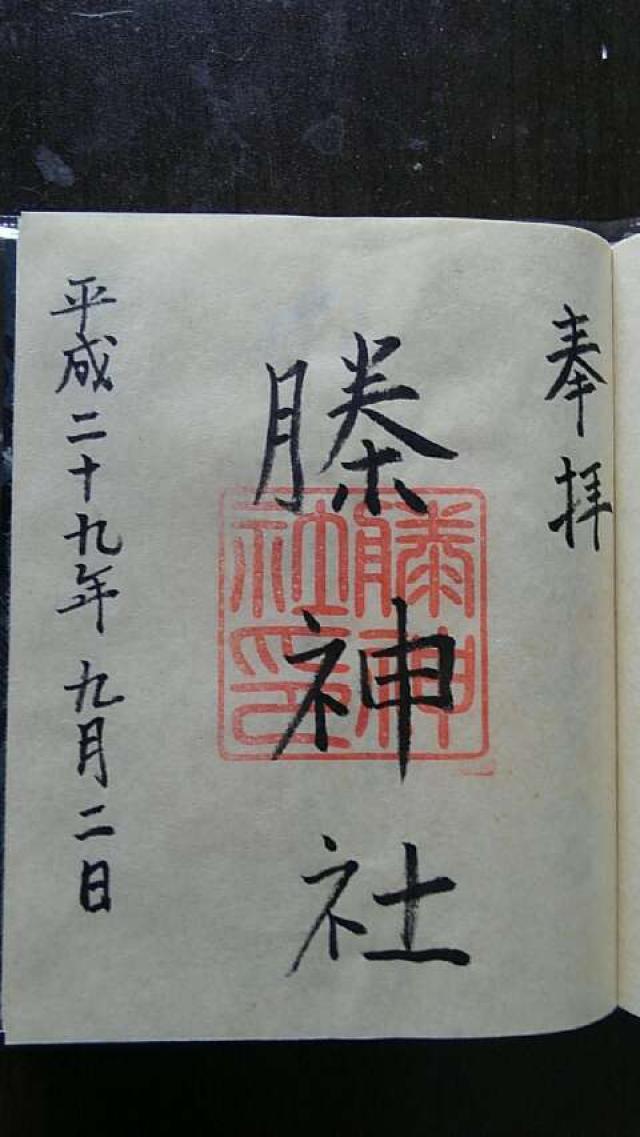 奉拝
榺神社
榺神
社印
平成二十九年九月二日